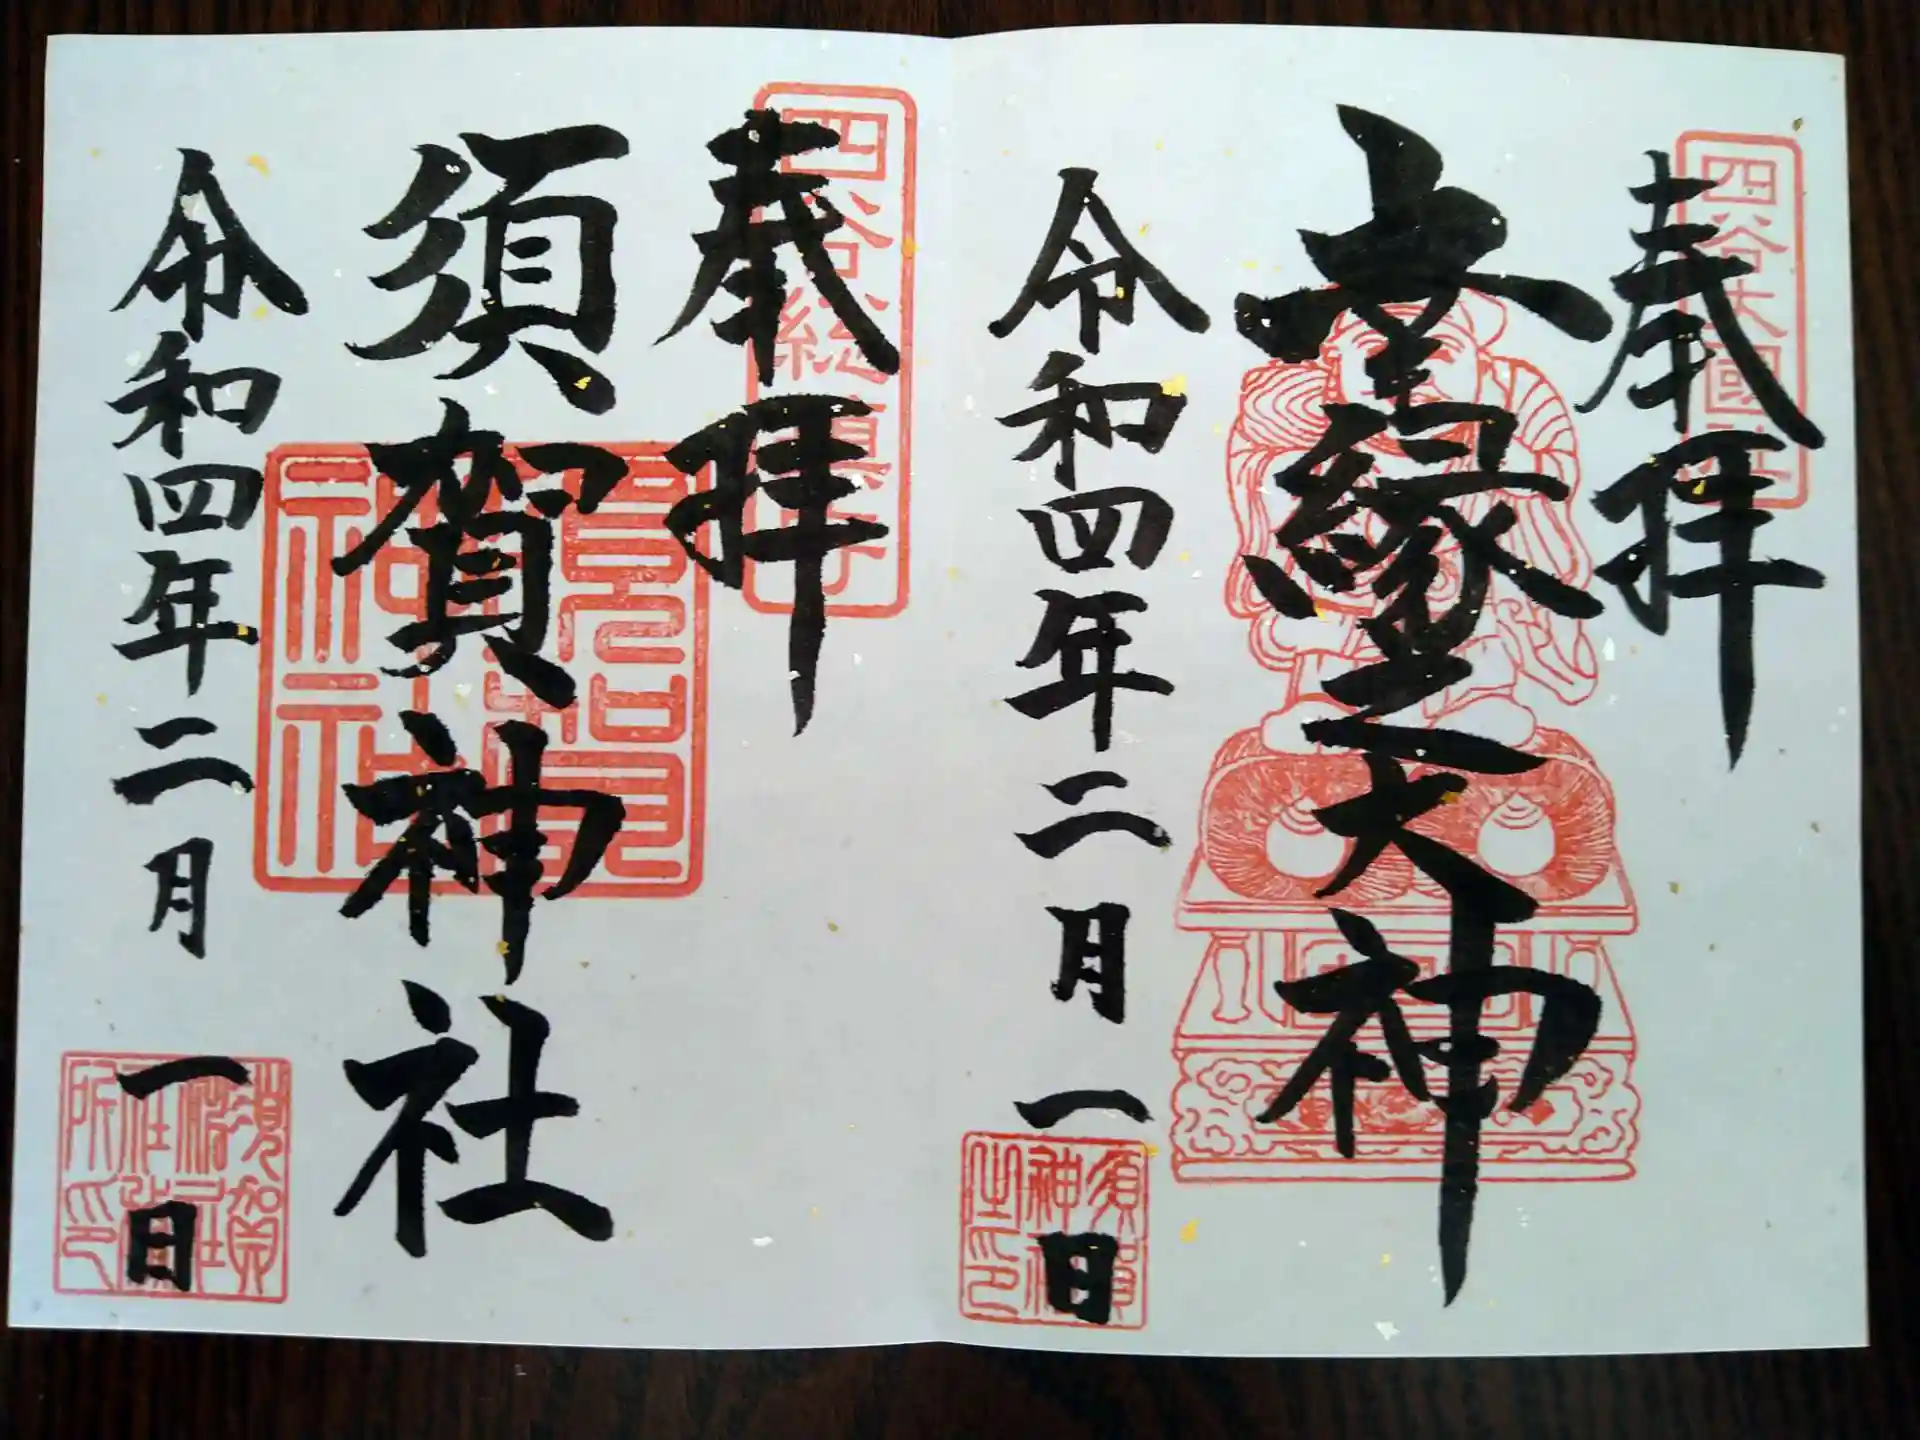 四谷大國社
奉拝
幸縁之大神
令和四年二月一日
須賀神社之印
四谷総鎮守
奉拝
須賀神社
令和四年二月一日
須賀神社社務所印